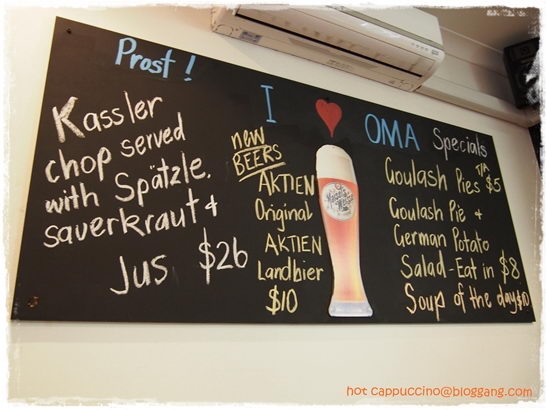 Prost!
Kassler
chop served
with Spätzle.
sauerkraut +
Jus $26
I ♥ OMA Specials
new
BEERS
AKTIEN
Original
AKTIEN
Landbier
$10
Goulash Pies T/A $5
Goulash Pie +
German Potato
Salad - Eat in $8
Soup of the day $10
hot cappuccino@bloggang.com